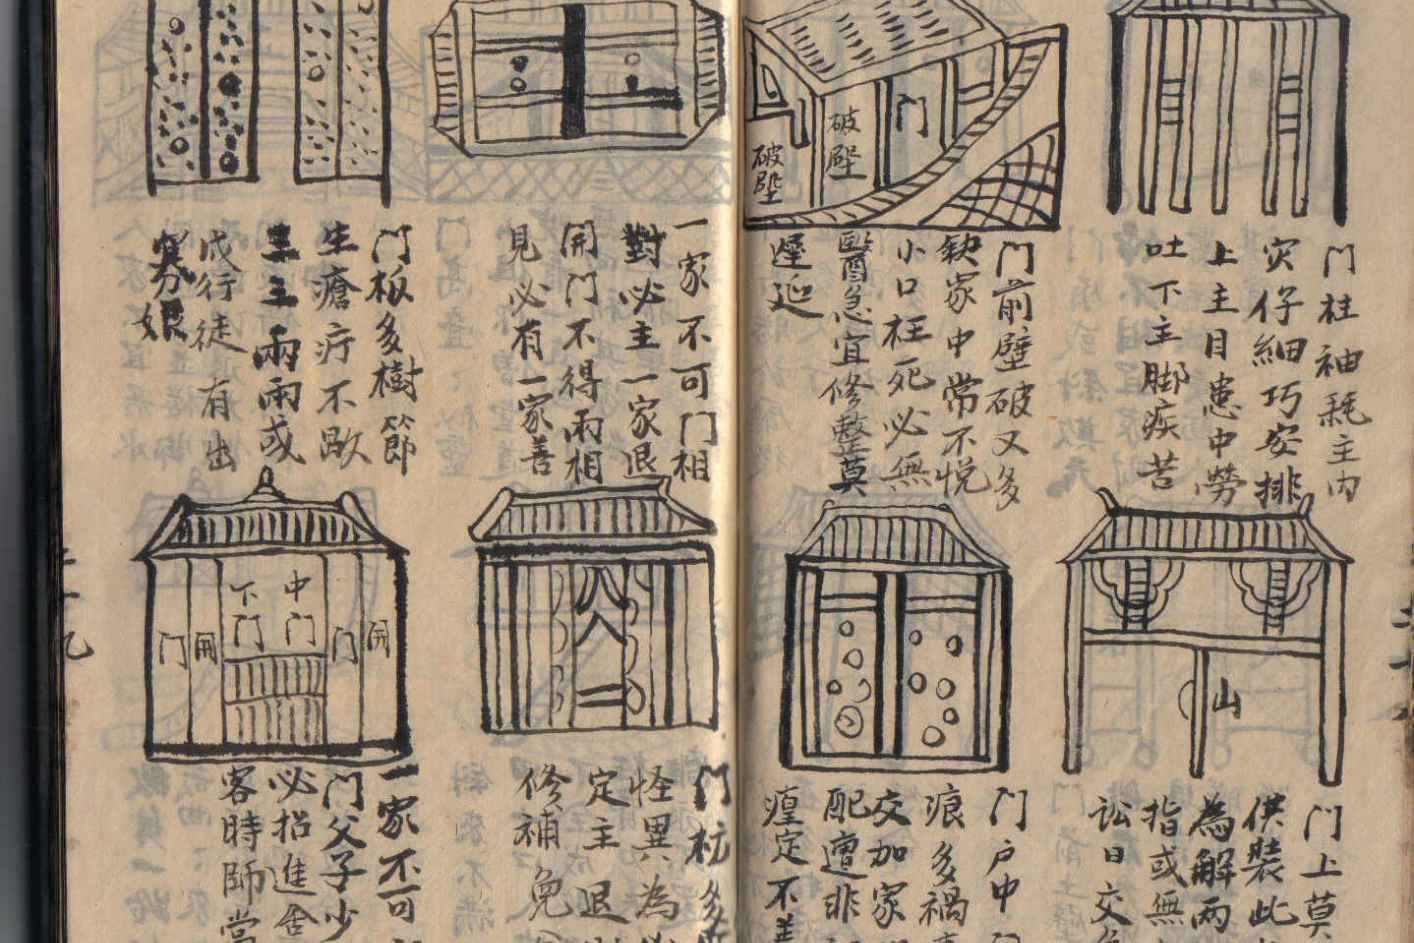 门柱神耗主内
灾仔細巧安排
上主目患中勞
吐下主脚疾苦
门前壁破又多
缺家中常不悦
小口枉死必無
醫急宜修整莫
遲延
破壁
破壁
门
一家不可门相
對必主一家退
開门不得兩相
見必有一家善
门板多樹節
生瘡疔不
兩兩或
成行徒有出
寡娘
门上莫
供裝此
為解兩
指或無
訟日交
山
门户中
痕多禍
交加家
配遭非
瘟定不善
门
怪異為
定主退
修補免
一家不可
门父子少
必招進舍
客時師當
中门
下门
门開
门開